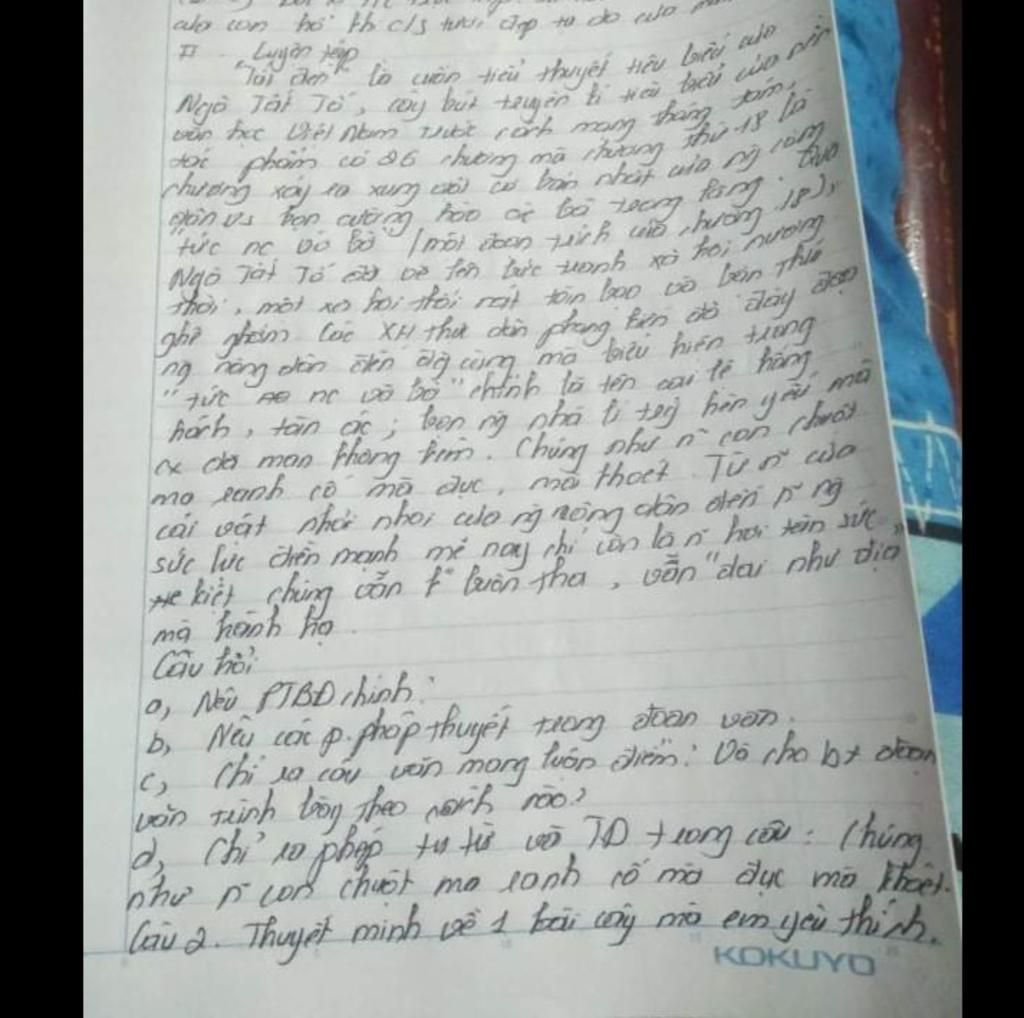 của con hổ khi c/s tươi đẹp tự do của
II Luyện tập
"Tắt đèn" là cuốn tiểu thuyết tiêu biểu của
Ngô Tất Tố, cây bút truyện kí tiêu biểu của nền
văn học Việt Nam trước cách mạng tháng tám.
tác phẩm có 26 chương mà chương thứ 18 là
chương xảy ra xung đột cơ bản nhất của ng nông
dân vs bọn cường hào ác bá trong làng. Qua
"tức nc vỡ bờ" (một đoạn trích của chương 18),
Ngô Tất Tố đã vẽ lên bức tranh xã hội đương
thời, một xã hội thối nát tàn bạo và bần thỉu
ghê ghớm. Các XH thực dân phong kiến đó đẩy
ng nông dân đến đg cùng mà biểu hiện trong
"tức nc vỡ bờ" chính là tên cai lệ hống
hách, tàn ác; bọn ng nhà lí trg hèn yếu mà
dã man không kém. Chúng như n~ con chuột
ma ranh cố mà đục, mà khoét. Từ n~ của
cải vật nhỏ nhoi của ng nông dân đến n~ ng
sức lực điền mạnh mẽ nay chỉ còn là n~ hơi tàn sức
kiệt chúng vẫn k buôn tha, vẫn "dai như đỉa"
mà hành hạ.
Câu hỏi
a, Nêu PTBĐ chính.
b, Nêu các p.pháp thuyết trong đoạn văn.
c, Chỉ ra câu văn mang luận điểm. Và cho bt đoạn
văn trình bày theo cách nào?
d, Chỉ ra phép tu từ và TD trong câu: Chúng
như n~ con chuột ma ranh cố mà đục mà khoét.
Câu 2. Thuyết minh về 1 loài cây mà em yêu thích.
KOKUYO